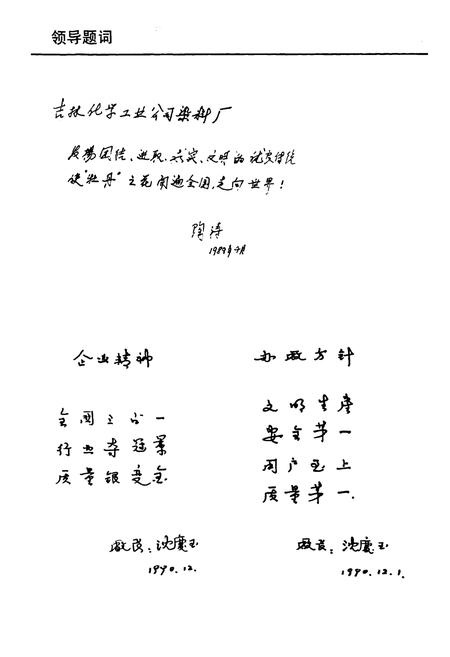 领导题词
吉林化学工业公司染料厂
发扬团结、进取、求实、文明的优良传统
使"牡丹"之花开遍全国，走向世界！
陶涛
1989年
企业精神
全国三百一
行业夺冠军
质量银变金
厂长：沈庆玉
1990.12.
办厂方针
文明生产
安全第一
用户至上
质量第一.
厂长：沈庆玉
1990.12.1.